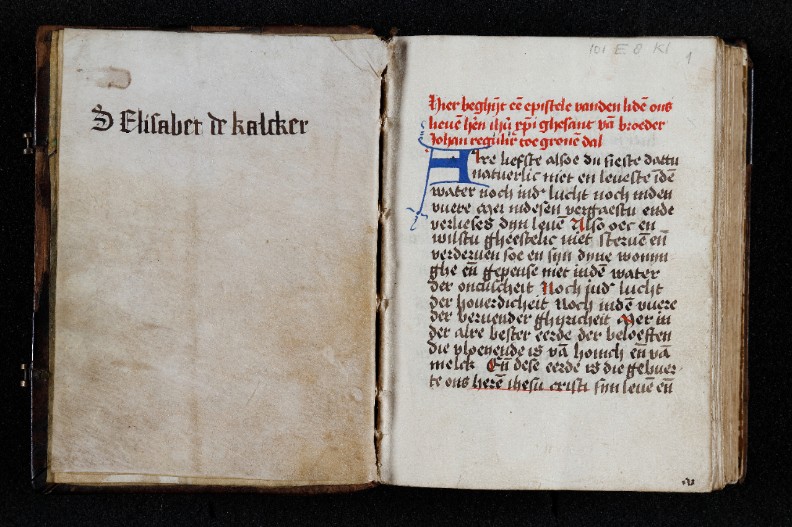 S Elisabet de kalcker
101 E 8 Kl
1
Hier beghīt eē epistele vanden lidē ons
lieuē hēn ihū xp̄i ghesant vā broeder
Johan regulir toe groenē dal
Alre liefste alsoe du sieste dattu
natuerlic niet en leueste īdē
water noch indʳ lucht noch inden
vuere Mer indesen vergaestu ende
verlieses dijn leuē Also oec en
wilstu gheestelic niet steruē eñ
verderuen soe en sijn dyne wonyn
ghe eñ gepeuse niet indē water
der oncuischeit Noch indʳ lucht
der houerdicheit Noch indē vuere
der bernender ghyricheit Mer in
der alre bester eerde der beloeften
die vloyende is vā honich eñ vā
melck Eñ dese eerde is die gebuer
te ons herē ihesu cristi sijn leuē eñ